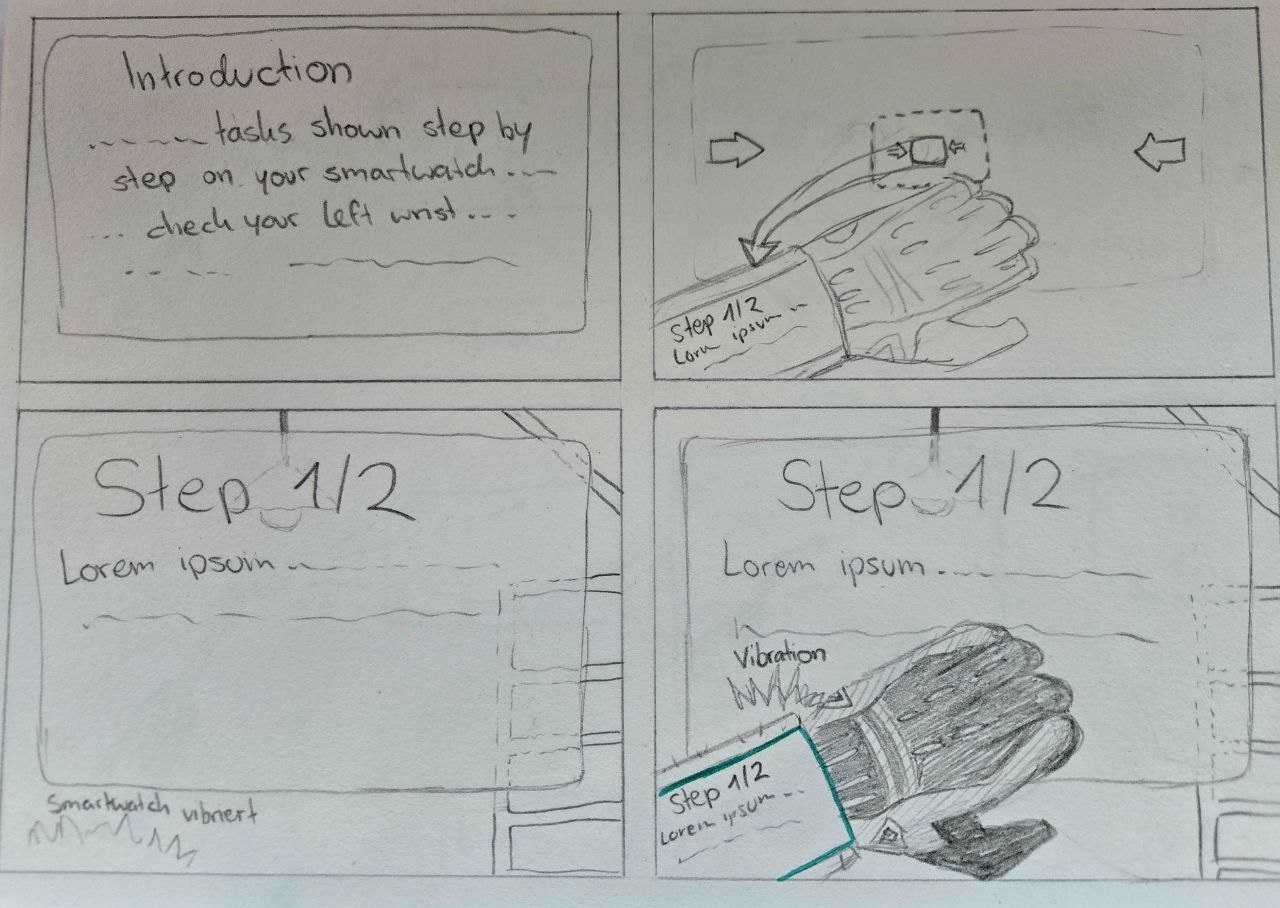 Introduction
..... tasks shown step by
step on your smartwatch...
... check your left wrist...
Step 1/2
Lorem ipsum ...
Step 1/2
Lorem ipsum ...
Smartwatch vibriert
Step 1/2
Lorem ipsum ...
Vibration
Step 1/2
Lorem ipsum ...